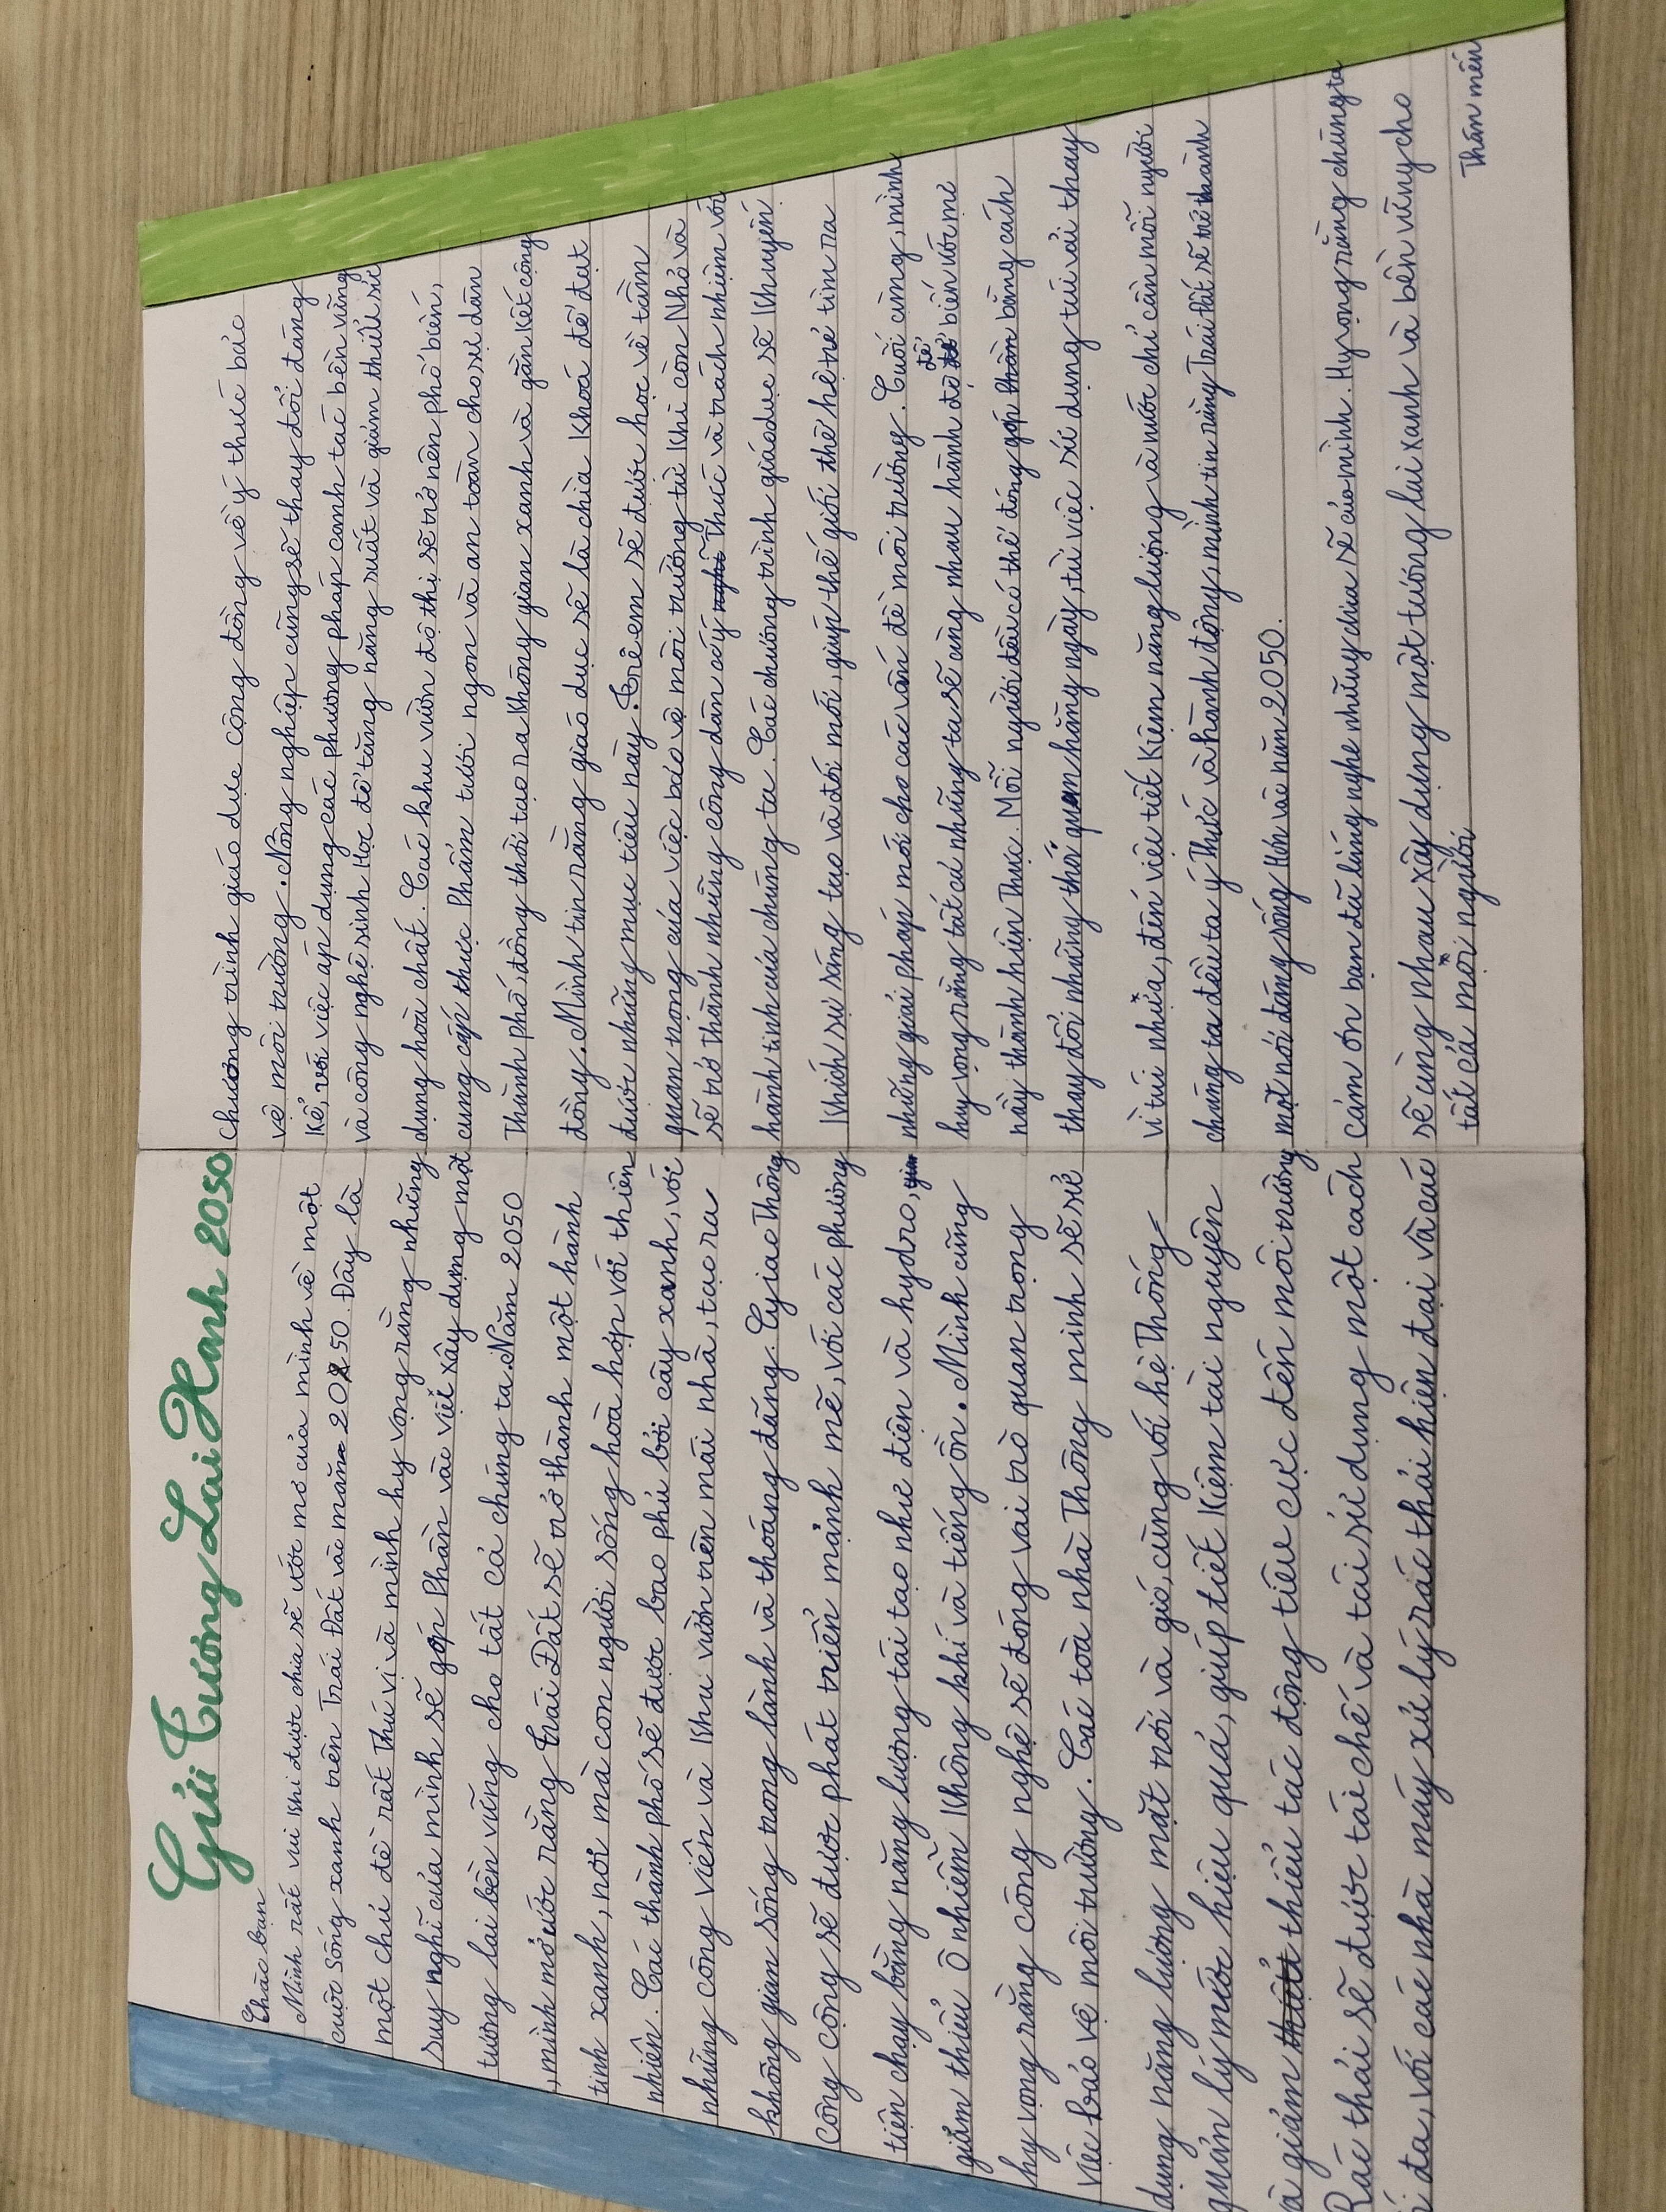 Gửi Tương Lai Xanh 2050
Chào bạn
Mình rất vui khi được chia sẽ ước mơ của mình về một
cuộc sống xanh trên Trái Đất vào năm 2050. Đây là
một chủ đề rất thú vị và mình hy vọng rằng những
suy nghĩ của mình sẽ góp phần vào việc xây dựng một
tương lai bền vững cho tất cả chúng ta. Năm 2050
, mình mơ ước rằng Trái Đất sẽ trở thành một hành
tinh xanh, nơi mà con người sống hoà hợp với thiên
nhiên. Các thành phố sẽ được bao phủ bởi cây xanh, với
những công viên và khu vườn trên mái nhà, tạo ra
không gian sống trong lành và thoáng đãng. Giao thông
công cộng sẽ được phát triển mạnh mẽ, với các phương
tiện chạy bằng năng lượng tái tạo như điện và hydro,
giảm thiểu ô nhiễm không khí và tiếng ồn. Mình cũng
hy vọng rằng công nghệ sẽ đóng vai trò quan trọng
việc bảo vệ môi trường. Các toà nhà thông minh sẽ sử
dụng năng lượng mặt trời và gió, cùng với hệ thống
quản lý nước hiệu quả, giúp tiết kiệm tài nguyên
và giảm thiểu tác động tiêu cực đến môi trường
Rác thải sẽ được tái chế và tái sử dụng một cách
đa, với các nhà máy xử lý rác thải hiện đại và các
chương trình giáo dục cộng đồng về ý thức bảo
vệ môi trường. Nông nghiệp cũng sẽ thay đổi đáng
kể, với việc áp dụng các phương pháp canh tác bền vững
và công nghệ sinh học để tăng năng suất và giảm thiểu sử
dụng hoá chất. Các khu vườn đô thị sẽ trở nên phổ biến,
cung cấp thực phẩm tươi ngon và an toàn cho dân
Thành phố, đồng thời tạo ra không gian xanh và gắn kết cộng
đồng. Mình tin rằng giáo dục sẽ là chìa khoá để đạt
được những mục tiêu này. Trẻ em sẽ được học về tầm
quan trọng của việc bảo vệ môi trường từ khi còn nhỏ và
sẽ trở thành những công dân có ý thức và trách nhiệm với
hành tinh của chúng ta. Các chương trình giáo dục sẽ khuyến
khích sự sáng tạo và đổi mới, giúp thế giới thế hệ trẻ tìm ra
những giải pháp mới cho các vấn đề môi trường. Cuối cùng, mình
hy vọng rằng tất cả những ta sẽ cùng nhau hành độ để biến ước mơ
này thành hiện thực. Mỗi người đều có thể đóng góp bằng cách
thay đổi những thói quen hằng ngày, từ việc sử dụng túi vải thay
vì túi nhựa, đến việc tiết kiệm năng lượng và nước chỉ cần mỗi người
chúng ta đều ta ý thức và hành động, mình tin rằng Trái Đất sẽ trở thành
một nơi đáng sống hơn vào năm 2050.
cảm ơn bạn đã lắng nghe những chia sẽ của mình. Hy vọng rằng chúng ta
sẽ cùng nhau xây dựng một tương lai xanh và bền vững cho
tất cả mọi người
Thân mến